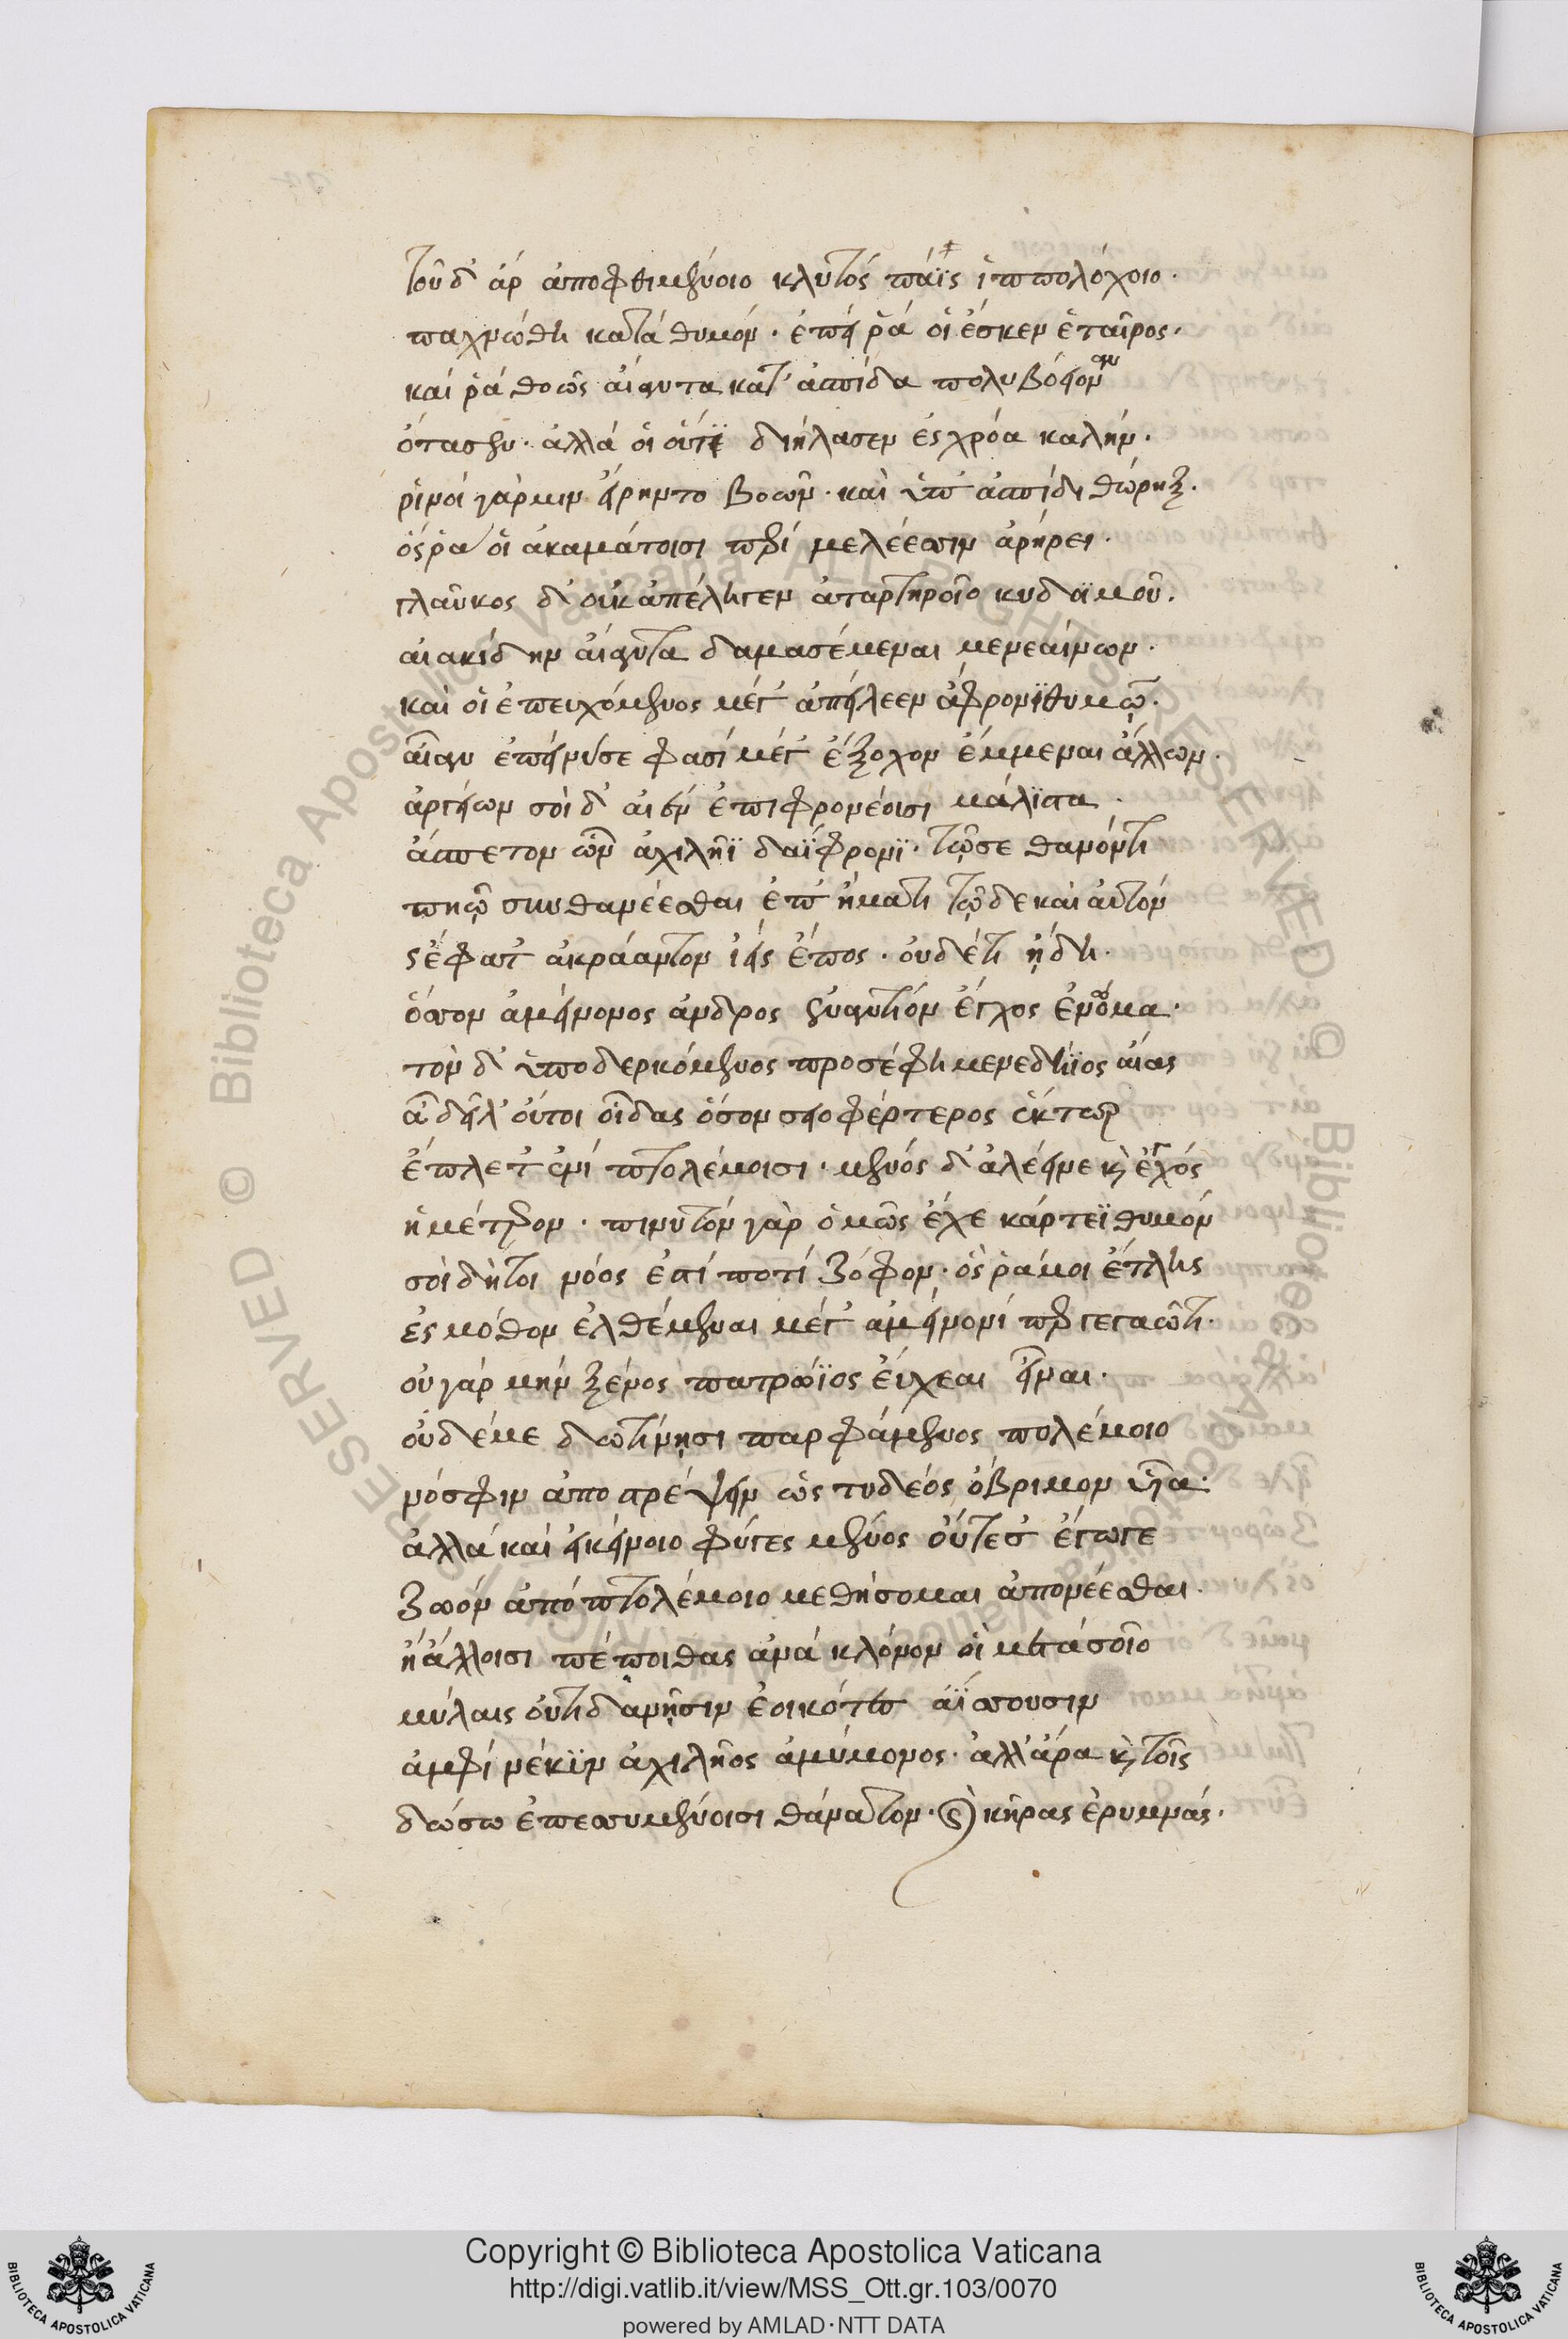 τοῦ δ' ἀρ ἀποφθιμένοιο κλυτός πάϊς ἱππολόχοιο.
παχνώθη κατά θυμόν. ἐπεί ῥά οἱ ἔσκεν ἑταῖρος.
καί ῥά θοῶς αἴαντα κατ' ἀσπίδα πολυβόειον
ὄτασεν. ἀλλά οἱ οὔτϊ διήλασεν ἐς χρόα καλήν.
ῥινοί γάρ μιν εἴρηντο βοῶν. καὶ ὑπ' ἀσπίδι θώρηξ.
ὅς ῥα οἱ ἀκαμάτοισι περί μελέεσσιν ἀρήρει.
γλαῦκος δ' οὐκ ἀπέληγεν ἀταρτηροῖο κυδαϊμοῦ.
αἰακίδην αἴαντα δαμασέμεναι μενεαίνων.
καὶ οἱ ἐπευχόμενος μέγ' ἀπείλεεν ἄφρονϊ θυμῷ.
αἶαν ἐπείνυσε φασί μέγ' ἔξοχον ἔμμεναι ἄλλων.
ἀργείων σοὶ δ' αἰέν ἐπιφρονέοισι μάλϊστα.
ἄσπετον ὧν ἀχιλῆϊ δαΐφρονϊ. τῷσε θανόντι
πηῷ συνθανέεσθαι ἐπ' ἤματι τῷδε καὶ αὐτόν
ς ἔφατ' ἀκράαντον ἱείς ἔπος. οὐδέτι ᾔδη.
ὅσσον ἀμείνονος ἀνδρος ἐναντιόν ἔγχος ἐνόμα.
τὸν δ' ὑποδερκόμενος προσέφη μενεδήϊος αἴας
ἆ δείλ' οὔτοι οἶδας ὅσον σεῖο φέρτερος ἕκτωρ
ἔπλετ' ἐνί πτολέμοισι. μένός δ' ἀλέεινε κὶ ἔγχός
ἡμέτερον. πινυτόν γὰρ ὁμῶς ἔχε κάρτεϊ θυμόν
σοὶ δήτοι νόος ἐστί ποτί ζόφον. ὅς ῥάμοι ἔτλης
ἐς μόθον ἐλθέμεναι μέγ' ἀμείνονί περ γεγαῶτι.
οὐ γάρ μήν ξένος πατρώϊος εὔχεαι εἶναι.
οὐδέμε δωτίνησι παρφάμενος πολέμοιο
νόσφιν ἀποστρέψειν ὡς τυδέός ὄβριμον υἷα.
ἀλλά καί εἰκείνοιο φύγες μένος οὔτεσ' ἔγωγε
ζωόν ἀπό πτολέμοιο μεθήσομαι ἀπονέεσθαι.
ἠ ἄλλοισι πέποιθας ἀνά κλόνον οἱ μετάσοῖο
μύλαις οὐτιδανῇσιν ἐοικότες ἀΐσσουσιν
ἀμφί νέκϊν ἀχιλῆος ἀμύμονος. ἀλλ' ἄρα κὶ τοῖς
δώσω ἐπεσσυμένοισι θάνατον. καὶ κῆρας ἐρυμνάς.
Copyright © Biblioteca Apostolica Vaticana
http://digi.vatlib.it/view/MSS_Ott.gr.103/0070
powered by AMLAD·NTT DATA